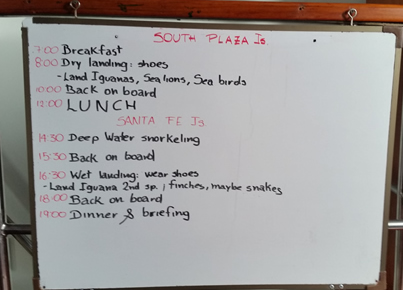 SOUTH PLAZA Is.
7:00 Breakfast
8:00 Dry landing: shoes
- Land Iguanas, Sea lions, Sea birds
10:00 Back on board
12:00 LUNCH
SANTA FE Is.
14:30 Deep Water snorkeling
15:30 Back on board
16:30 Wet landing: wear shoes
- Land Iguana 2nd sp. , finches, maybe snakes
18:00 Back on board
19:00 Dinner & briefing